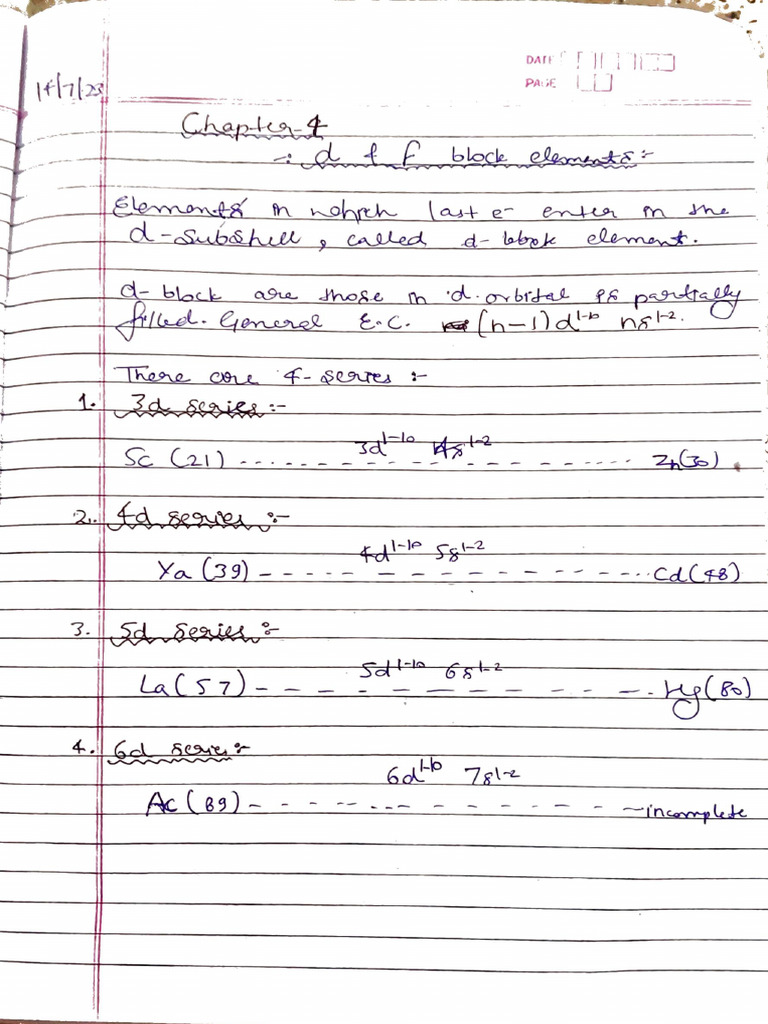 DATE
PAGE
14/7/23
Chapter-4
-: d & f block elements:-
Elements in which last e- enter in the
d-Subshell, called d-block element.
d-block are those in d.orbital is partially
filled. General E.C. (n-1)d¹⁻¹⁰ ns¹⁻².
There are 4-series :-
1. 3d series:-
3d¹⁻¹⁰ 4s¹⁻²
Sc (21) ---------- Zn(30)
2. 4d series :-
4d¹⁻¹⁰ 5s¹⁻²
Ya (39) ---------- Cd(48)
3. 5d series:-
5d¹⁻¹⁰ 6s¹⁻²
La(57) ---------- Hg(80)
4. 6d series:-
6d¹⁻¹⁰ 7s¹⁻²
Ac (89) ---------- incomplete